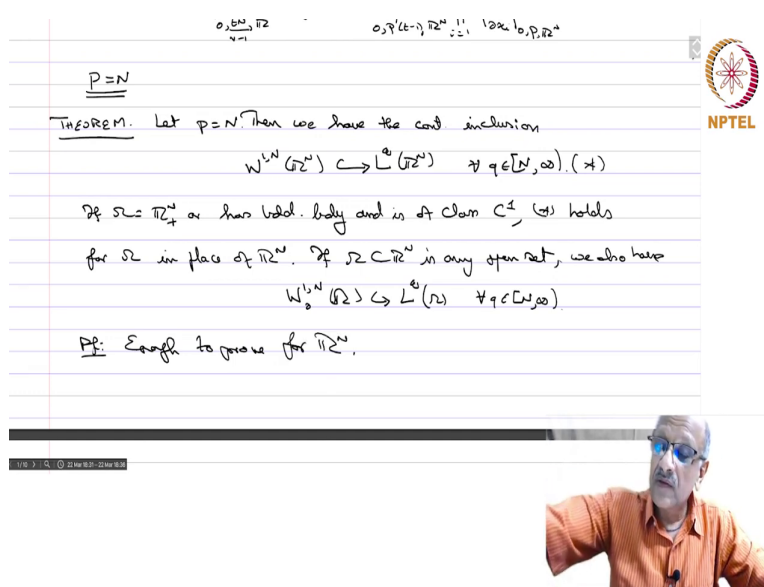 P = N
THEOREM. Let p = N. Then we have the cont. inclusion
W^{1,N}(ℝ^N) ↪ L^q(ℝ^N) ∀ q ∈ [N, ∞). (*)
If Ω = ℝ^N_+ or has bdd. bdy and is of class C^1, (*) holds
for Ω in place of ℝ^N. If Ω ⊂ ℝ^N is any open set, we also have
W_0^{1,N}(Ω) ↪ L^q(Ω) ∀ q ∈ [N, ∞).
Pf: Enough to prove for ℝ^N.
NPTEL
1/10
22 Mar 18:31 - 22 Mar 18:36